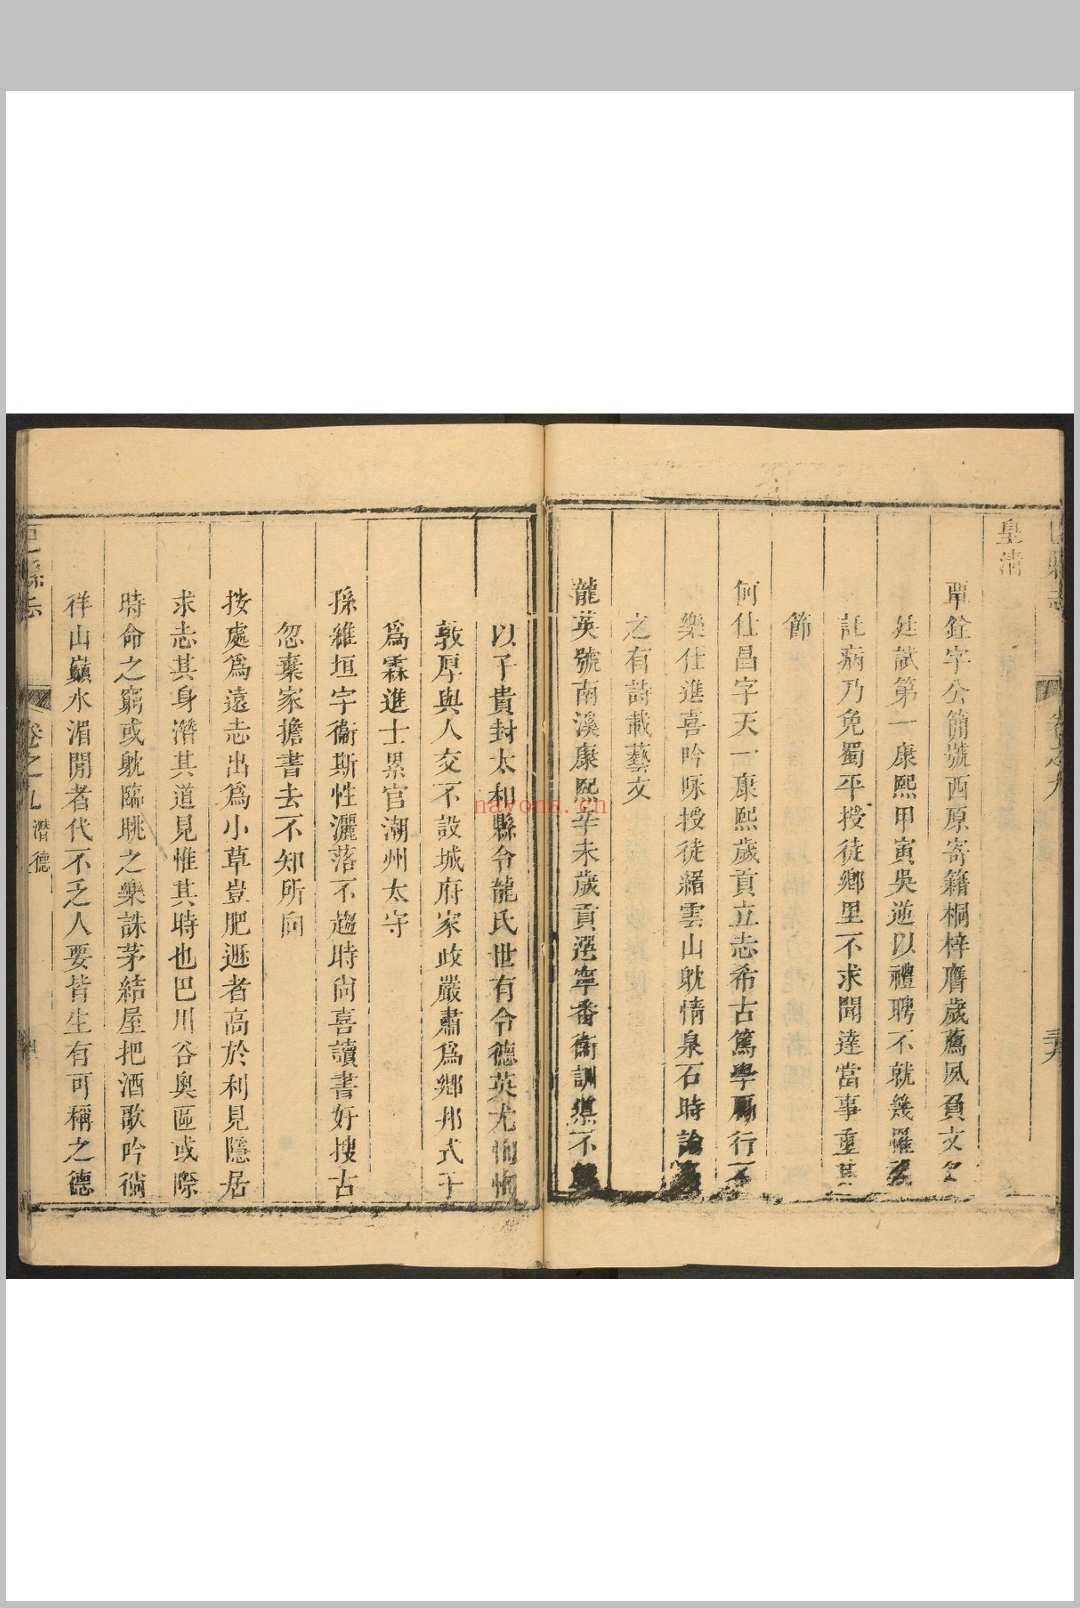 皇清
覃銓字公簡號西原寄籍桐梓膺歲薦夙負文名
廷試第一康熙甲寅吳逆以禮聘不就幾罹
託病乃免蜀平授徒鄉里不求聞達當事重其
節
何仕昌字天一康熙歲貢立志希古篤學勵行不
樂仕進喜吟咏授徒縉雲山躭情泉石時論
之有詩載藝文
龍英號南溪康熙辛未歲貢選寧番衞訓導不
以子貴封太和縣令龍氏世有令德英尤恂恂
敦厚與人交不設城府家政嚴肅爲鄉邦式子
爲霖進士累官潮州太守
孫維垣字衞斯性灑落不趨時尚喜讀書好搜古
忽棄家擔書去不知所向
按處爲遠志出爲小草豈肥遯者高於利見隱居
求志其身潛其道見惟其時也巴川谷奧區或際
時命之窮或躭臨眺之樂誅茅結屋把酒歌吟徜
徉山巔水湄閒者代不乏人要皆生有可稱之德
巴縣志
卷之九
潛德
nayona.cn